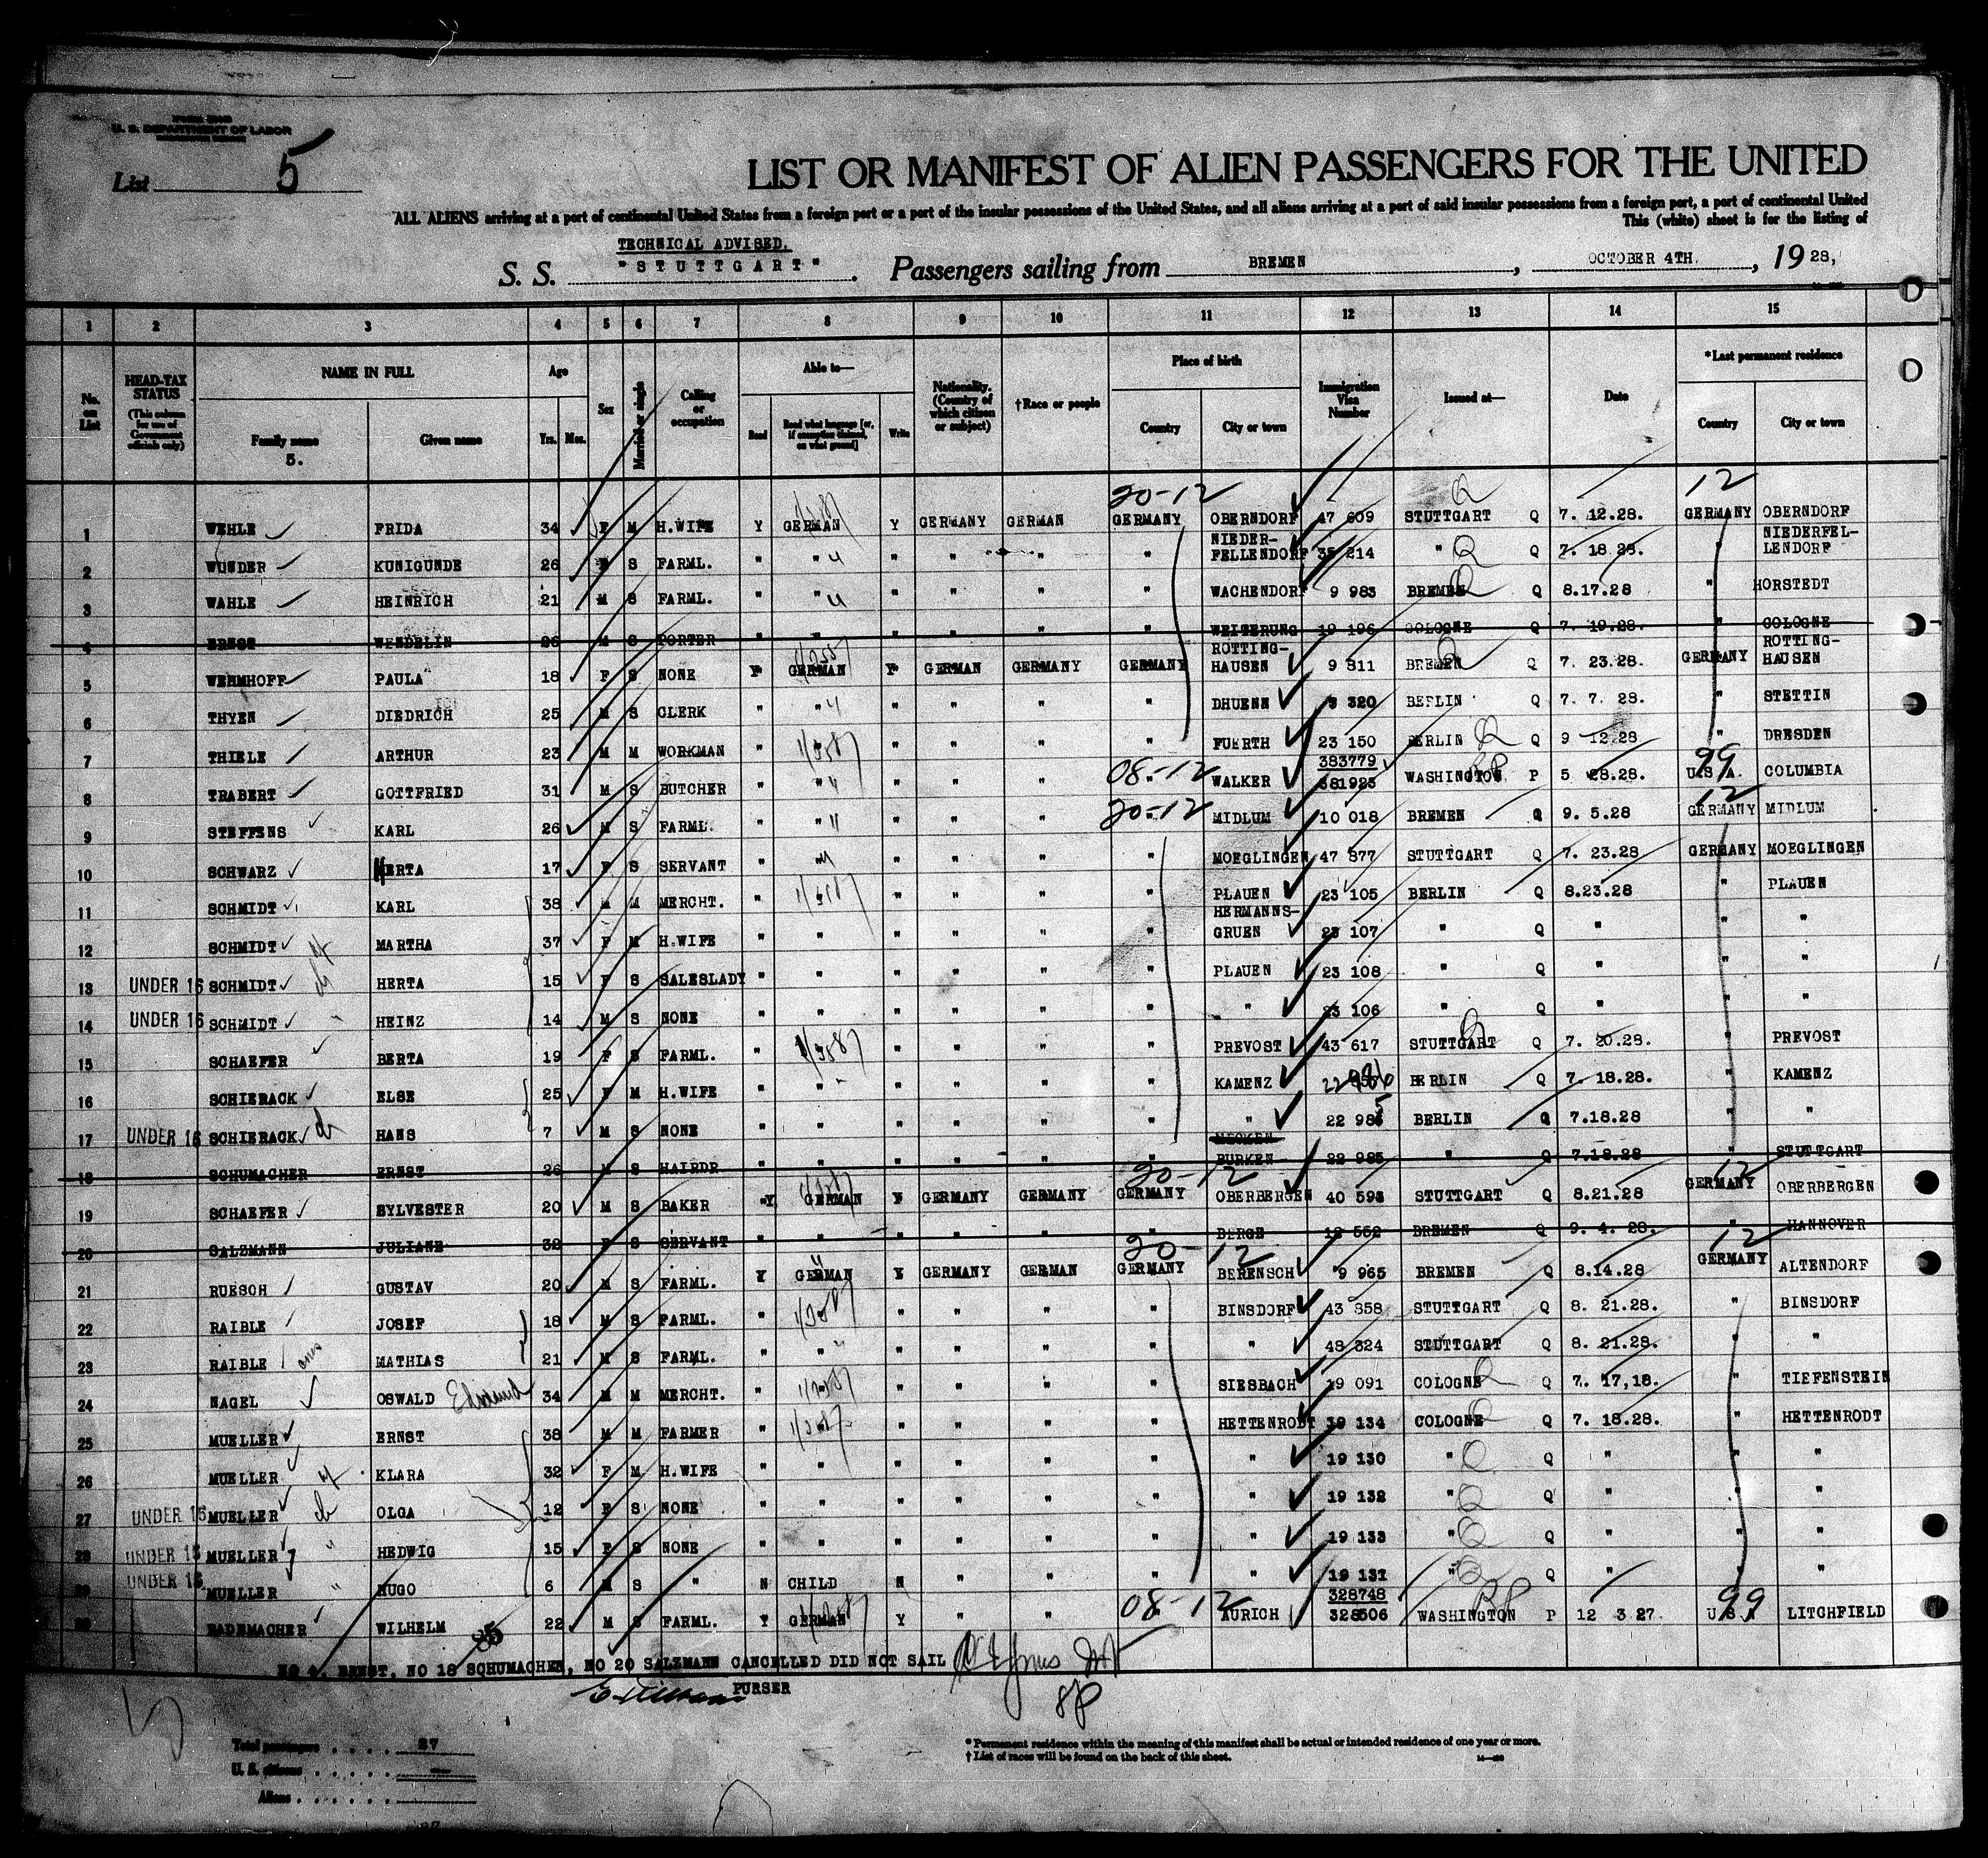 U. S. DEPARTMENT OF LABOR
List 5
LIST OR MANIFEST OF ALIEN PASSENGERS FOR THE UNITED
ALL ALIENS arriving at a port of continental United States from a foreign port or a port of the insular possessions of the United States, and all aliens arriving at a port of said insular possessions from a foreign port, a port of continental United
This (white) sheet is for the listing of
TECHNICAL ADVISED.
S. S. "STUTTGART" Passengers sailing from BREMEN, OCTOBER 4TH. , 1928,
1 2 3 4 5 6 7 8 9 10 11 12 13 14 15
No. on List HEAD-TAX STATUS (This column for use of Government officials only) NAME IN FULL Family name Given name Age Yrs. Mos. Sex Married or single Calling or occupation Able to— Read Read what language [or, if exemption claimed, on what ground] Write Nationality. (Country of which citizen or subject) †Race or people Place of birth Country City or town Immigration Visa Number Issued at— Date *Last permanent residence Country City or town
5.
20-12 12
1 WEHLE FRIDA 34 F M H.WIFE Y GERMAN Y GERMANY GERMAN GERMANY OBERNDORF 47 609 STUTTGART Q 7. 12.28. GERMANY OBERNDORF
2 WUNDER KUNIGUNDE 26 S FARML. " " " " " " NIEDER-FELLENDORF 35 214 " Q 7. 18.28. " NIEDERFEL-LENDORF
3 WAHLE HEINRICH 21 M S FARML. " " " " " " WACHENDORF 9 983 BREMEN Q 8.17.28 " HORSTEDT
4 ERNST WENDELIN 26 M S PORTER " " " " " " WEITERUNG 19 196 COLOGNE Q 7. 19.28. " COLOGNE
5 WERMHOFF PAULA 18 F S NONE Y GERMAN Y GERMAN GERMANY GERMANY ROTTING-HAUSEN 9 811 BREMEN Q 7. 23.28. GERMANY ROTTING-HAUSEN
6 THYEN DIEDRICH 25 M S CLERK " " " " " " DHUENN 9 320 BERLIN Q 7. 7. 28. " STETTIN
7 THIELE ARTHUR 23 M M WORKMAN " " " " " FUERTH 23 150 BERLIN Q 9 12.28 " DRESDEN
8 TRABERT GOTTFRIED 31 M S BUTCHER " " " " " 08-12 " WALKER 383779 381923 WASHINGTON P 5 28.28. U.S.A. 99 COLUMBIA
9 STEFFENS KARL 26 M S FARML. " " " " " 20-12 " MIDLUM 10 018 BREMEN Q 9. 5.28 12 GERMANY MIDLUM
10 SCHWARZ HERTA 17 F S SERVANT " " " " " " MOEGLINGEN 47 877 STUTTGART Q 7. 23.28 GERMANY MOEGLINGEN
11 SCHMIDT KARL 38 M M MERCHT. " " " " " PLAUEN 23 105 BERLIN Q 8.23.28 " PLAUEN
12 SCHMIDT MARTHA 37 F M H.WIFE " " " " " " HERMANNS-GRUEN 23 107 " Q " " "
13 UNDER 16 SCHMIDT HERTA 15 F S SALESLADY " " " " " " PLAUEN 23 108 " Q " " "
14 UNDER 16 SCHMIDT HEINZ 14 M S NONE " " " " " " " 23 106 " Q " " "
15 SCHAEFER BERTA 19 F S FARML. " " " " " PREVOST 43 617 STUTTGART Q 7. 20.28. " PREVOST
16 SCHIERACK ELSE 25 F M H.WIFE " " " " " " KAMENZ BERLIN Q 7. 18.28. " KAMENZ
17 UNDER 16 SCHIERACK HANS 7 M S NONE " " " " " " " 22 985 BERLIN Q 7.18.28 " "
18 SCHUMACHER ERNST 26 M S HAIRDR. " " " " " " BURKEN 22 985 " Q 7.18.28 STUTTGART
20-12 12
19 SCHAEFER SYLVESTER 20 M S BAKER Y GERMAN Y GERMANY GERMANY GERMANY OBERBERGEN 40 593 STUTTGART Q 8.21.28 GERMANY OBERBERGEN
20 SALZMANN JULIANE 32 F S SERVANT " " " " " " BERGE 12 552 BREMEN Q 9. 4. 28. " HANNOVER
20-12 12
21 RUESCH GUSTAV 20 M S FARML. Y GERMAN Y GERMANY GERMAN GERMANY BERENSCH 9 965 BREMEN Q 8.14.28 GERMANY ALTENDORF
22 RAIBLE JOSEF 18 M S FARML. " " " " " BINSDORF 43 358 STUTTGART Q 8. 21.28. " BINSDORF
23 RAIBLE MATHIAS 21 M S FARML. " " " " " " " 48 324 STUTTGART Q 8. 21.28. " "
24 NAGEL OSWALD Edmund 34 M M MERCHT. " " " " " SIESBACH 19 091 COLOGNE Q 7. 17,18. " TIEFENSTEIN
25 MUELLER ERNST 38 M M FARMER " " " " " HETTENRODT 19 134 COLOGNE Q 7. 18.28. " HETTENRODT
26 MUELLER KLARA 32 F M H.WIFE " " " " " " " 19 130 " Q " " "
27 UNDER 16 MUELLER OLGA 12 F S NONE " " " " " " " 19 132 " Q " " "
28 UNDER 16 MUELLER HEDWIG 15 F S NONE " " " " " " " 19 133 " Q " " "
29 UNDER 16 MUELLER HUGO 6 M S " N CHILD N " " " " 19 131 " Q " " "
30 RADEMACHER WILHELM 22 M S FARML. Y GERMAN Y " " 08-12 AURICH 328748 328506 WASHINGTON P 12 3 27. U.S.A 99 LITCHFIELD
NO 4, ERNST, NO 18 SCHUMACHER, NO 20 SALZMANN CANCELLED DID NOT SAIL
PURSER
Total passengers . . . . 27
U. S. citizens . . . . . —
Aliens . . . . . .
* Permanent residence within the meaning of this manifest shall be actual or intended residence of one year or more.
† List of races will be found on the back of this sheet.